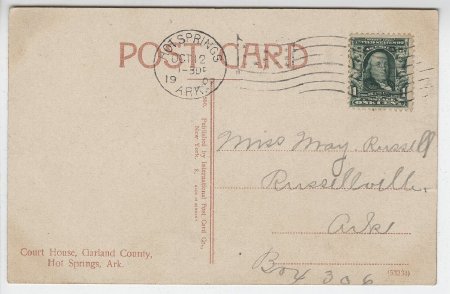 POST CARD
HOT SPRINGS
OCT 12
19
ARK.
1
ONE CENT
Published by International Post Card Co.,
New York.
Miss May Russell
Russellville
Ark
Box 306
Court House, Garland County,
Hot Springs, Ark.